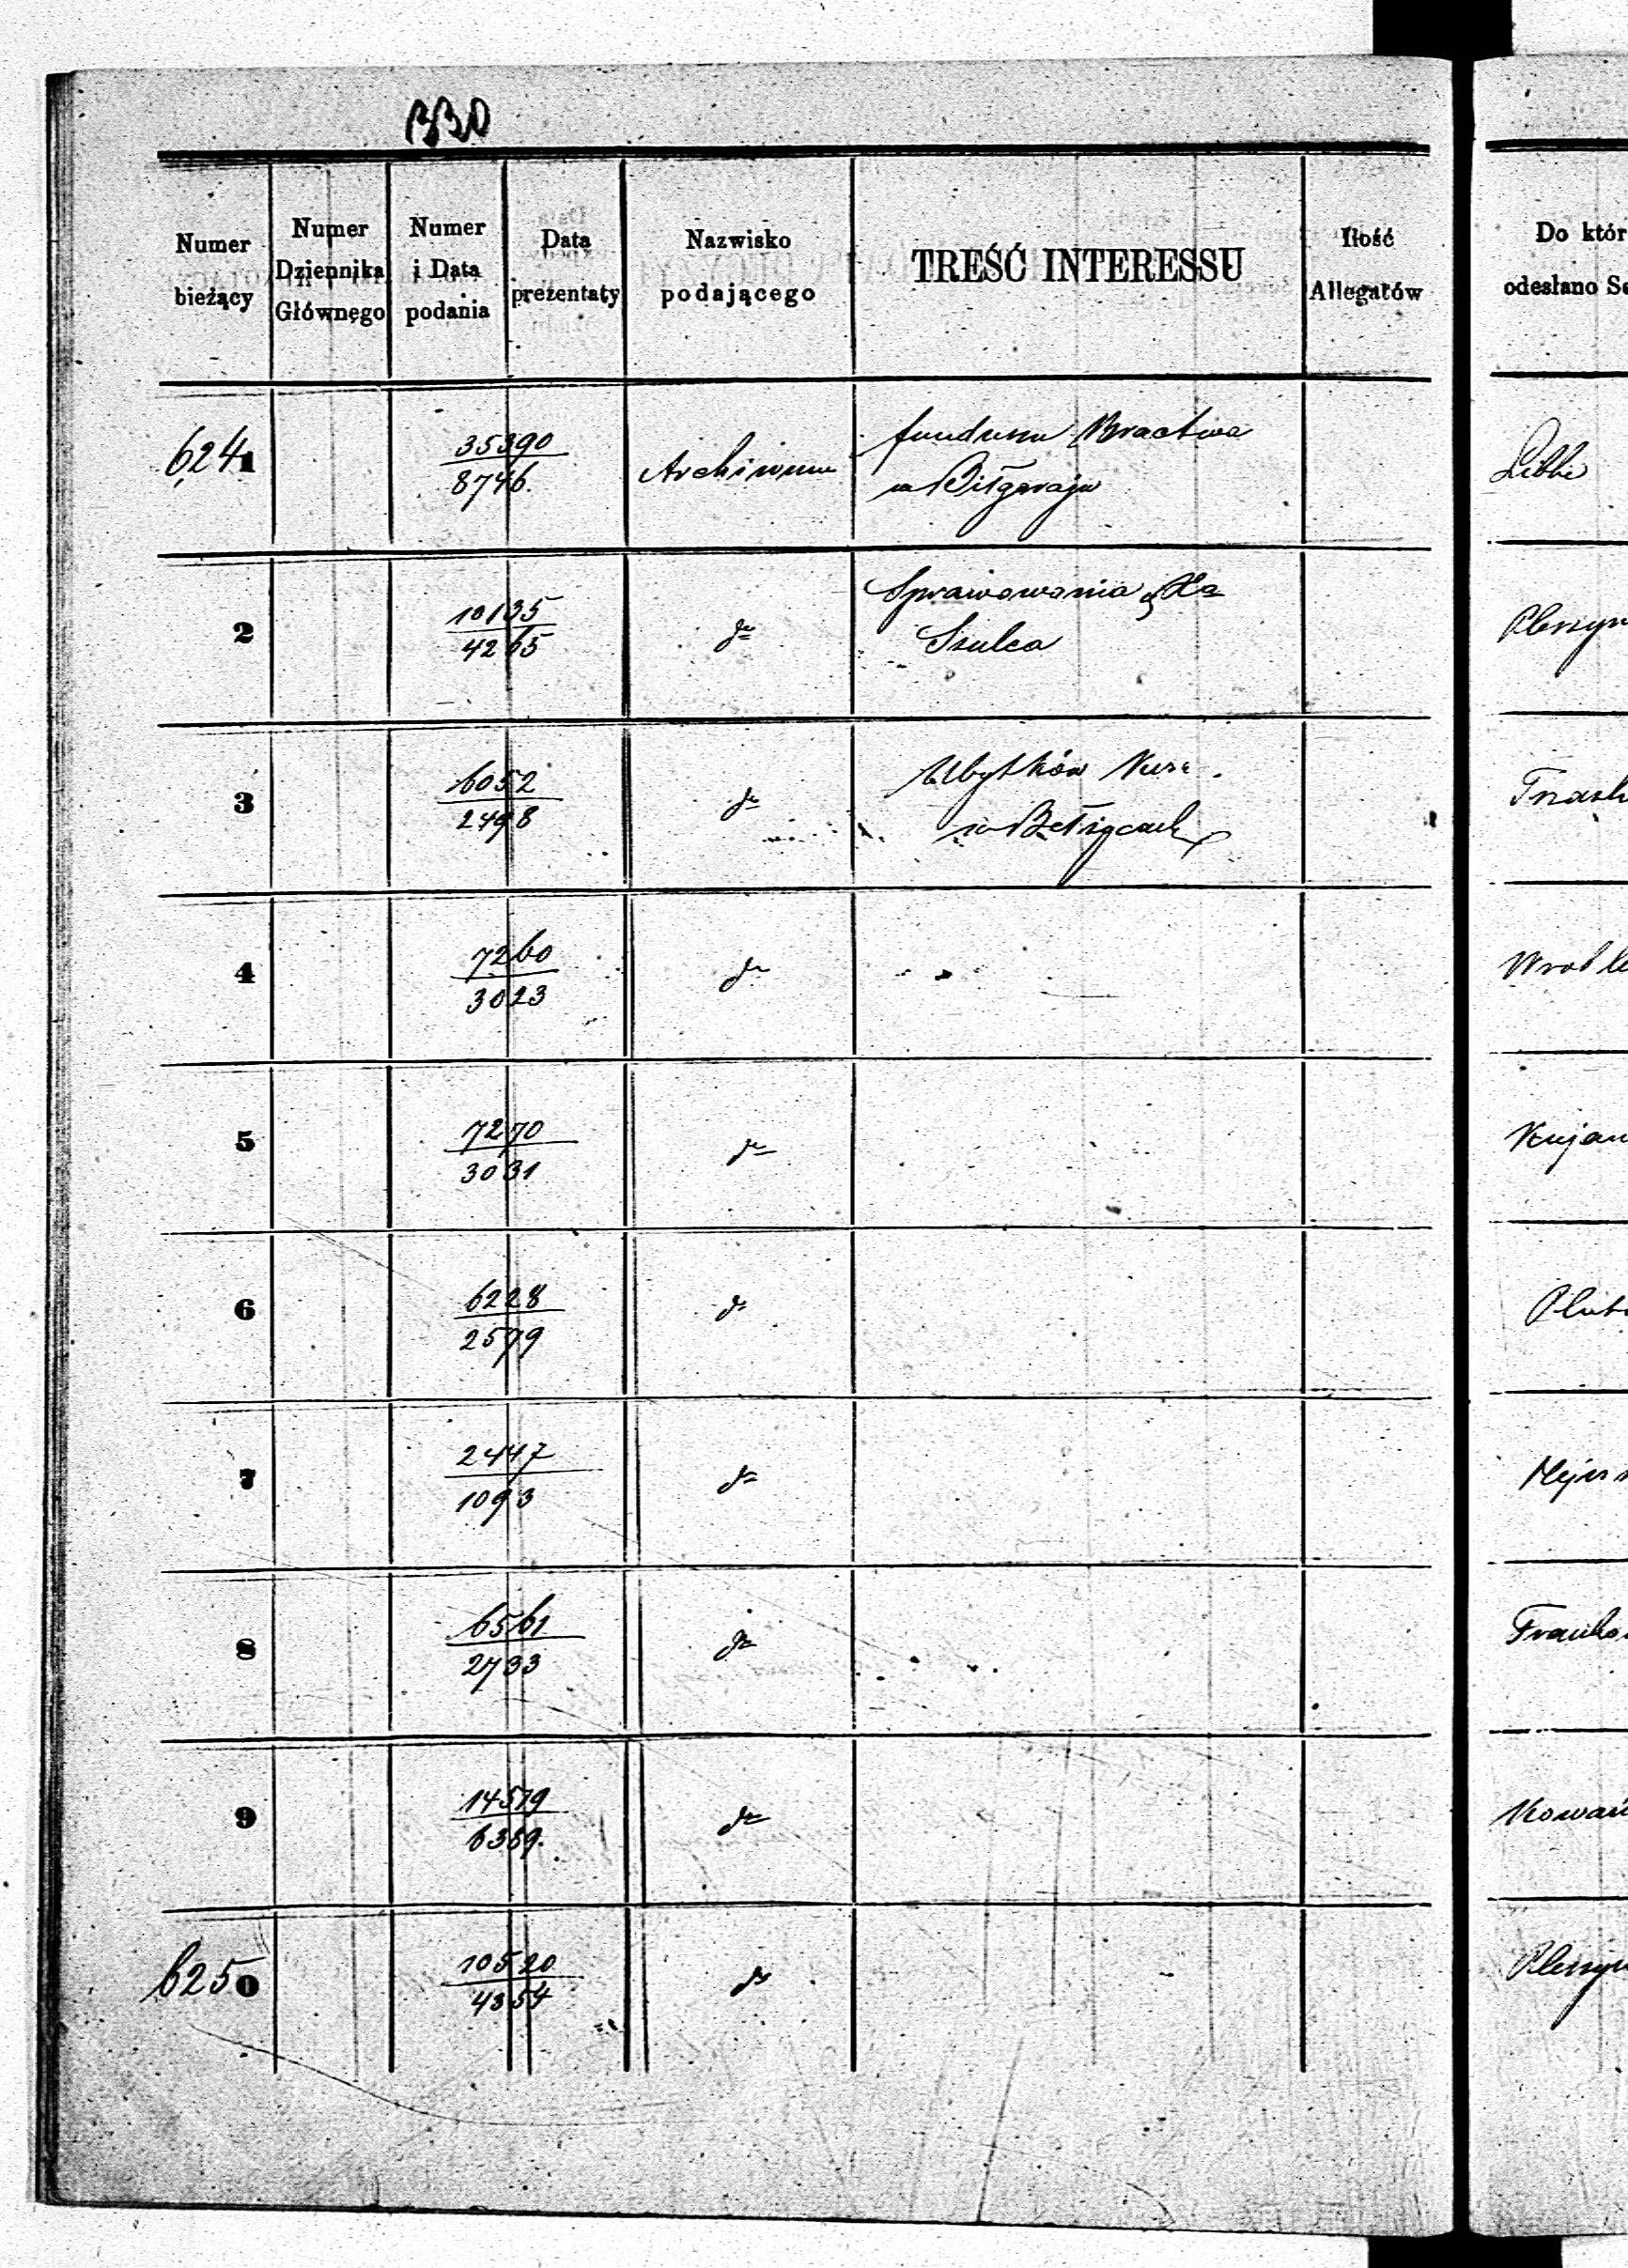 330
Numer bieżący
Numer Dziennika Głównego
Numer i Data podania
Data prezentaty
Nazwisko podającego
TREŚĆ INTERESSU
Ilość Allegatów
Do któr
odesłano Se
6241
35390
8746.
Archiwum
funduszu Bractwa
w Biłgoraju
2
10135
4265
do
Sprawowania
Szulca
3
6052
2498
do
Ubytków
w Bełżycach
4
7260
3023
do
5
7270
3031
do
Kujaw
6
6228
2579
do
7
2447
1093
do
8
6561
2733
do
9
14579
6359.
do
6250
10520
4354
do